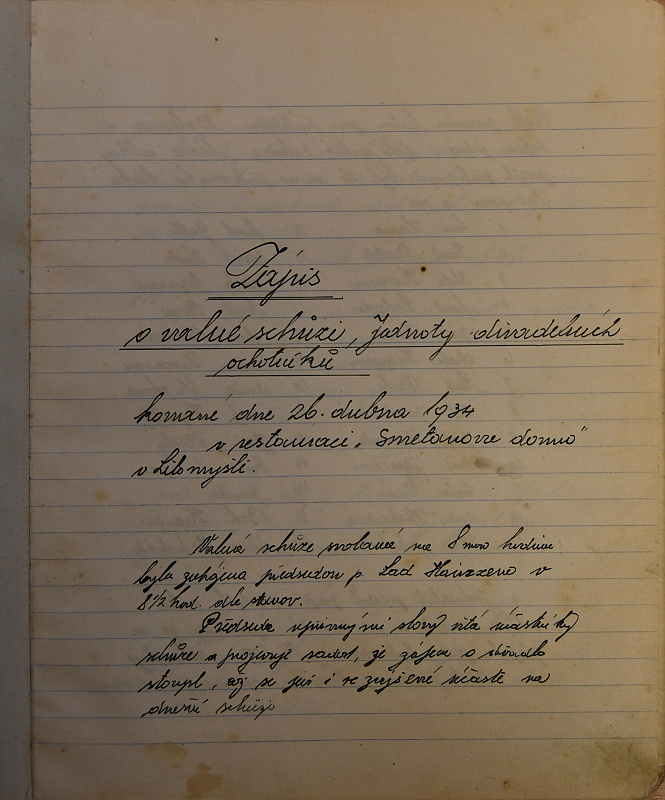 Zápis
o valné schůzi „Jednoty divadelních
ochotníků"
konané dne 26. dubna 1934
v restauraci „Smetanově domě"
v Litomyšli.
Valná schůze svolaná na 8mou hodinu
byla zahájena předsedou p. Lad
v
8 1/2 hod. dle stanov.
Předseda upřímnými slovy vítá účastníky
schůze a projevuje radost, že zájem o divadlo
stoupl, což se jeví i ve zvýšené účasti na
dnešní schůzi